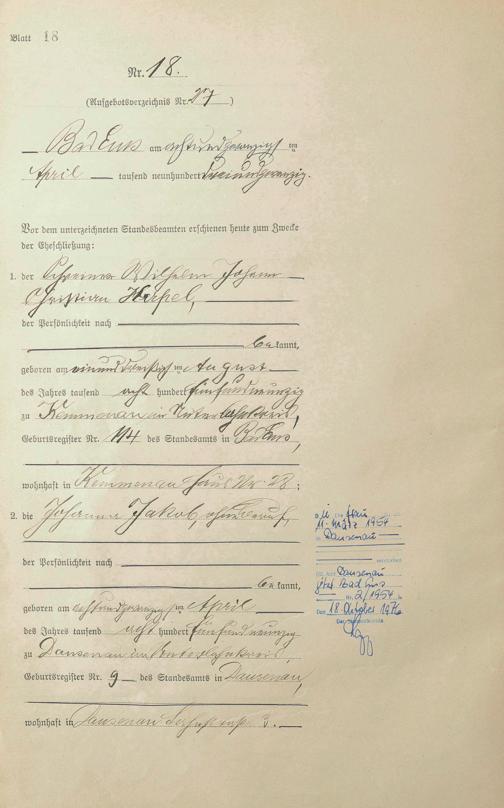 Blatt 18
Nr. 18.
(Aufgebotsverzeichnis Nr. 27)
Bad Ems am achtundzwanzigsten
April tausend neunhundert zwanzig.
Vor dem unterzeichneten Standesbeamten erschienen heute zum Zwecke
der Eheschließung:
1. der Schreiner Wilhelm Johann
Christian
der Persönlichkeit nach
be kannt,
geboren am einunddreißigsten August
des Jahres tausend acht hundert fünfundneunzig
zu Kemmenau im Unterlahnkreis,
Geburtsregister Nr. 114 des Standesamts in Bad Ems,
wohnhaft in Kemmenau Haus Nr. 28;
2. die Johanna Jakob, ohne Beruf,
der Persönlichkeit nach
be kannt,
geboren am achtundzwanzigsten April
des Jahres tausend acht hundert fünfundneunzig
zu Dausenau im Unterlahnkreis,
Geburtsregister Nr. 9 des Standesamts in Dausenau,
wohnhaft in Dausenau 3.
Die Frau
11. März 1954
in Dausenau
verstorben
Dausenau
Bad Ems
Nr. 2/1954
Den 18. Oktober 1976